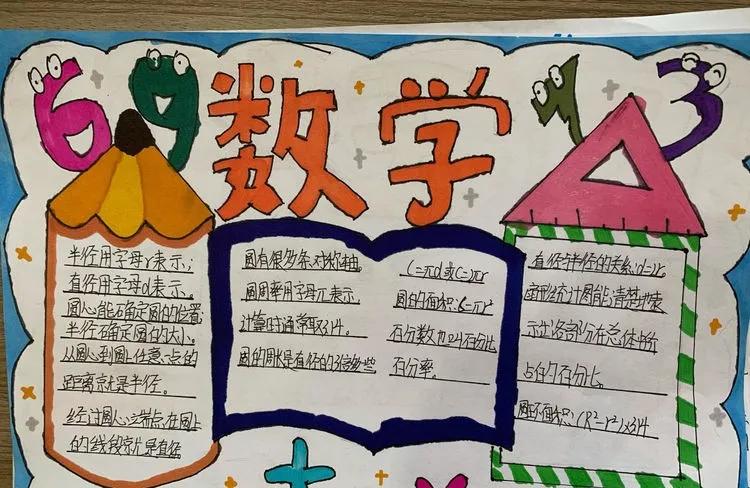 69 数学 4 3
半径用字母r表示;
直径用字母d表示。
圆心能确定圆的位置;
半径确定圆的大小。
从圆心到圆上任意一点的
距离就是半径。
经过圆心,两端点在圆上
的线段就是直径
圆有很多条对称轴。
圆周率用字母π表示。
计算时通常取3.14。
圆的周长是直径的3倍多些
C=πd或C=2πr
圆的面积:S=πr²
百分数也叫百分比
百分率。
直径与半径的关系:d=2r。
扇形统计图能清楚地表
示出各部分在总体中所
占的百分比。
圆环面积:(R²-r²)×3.14